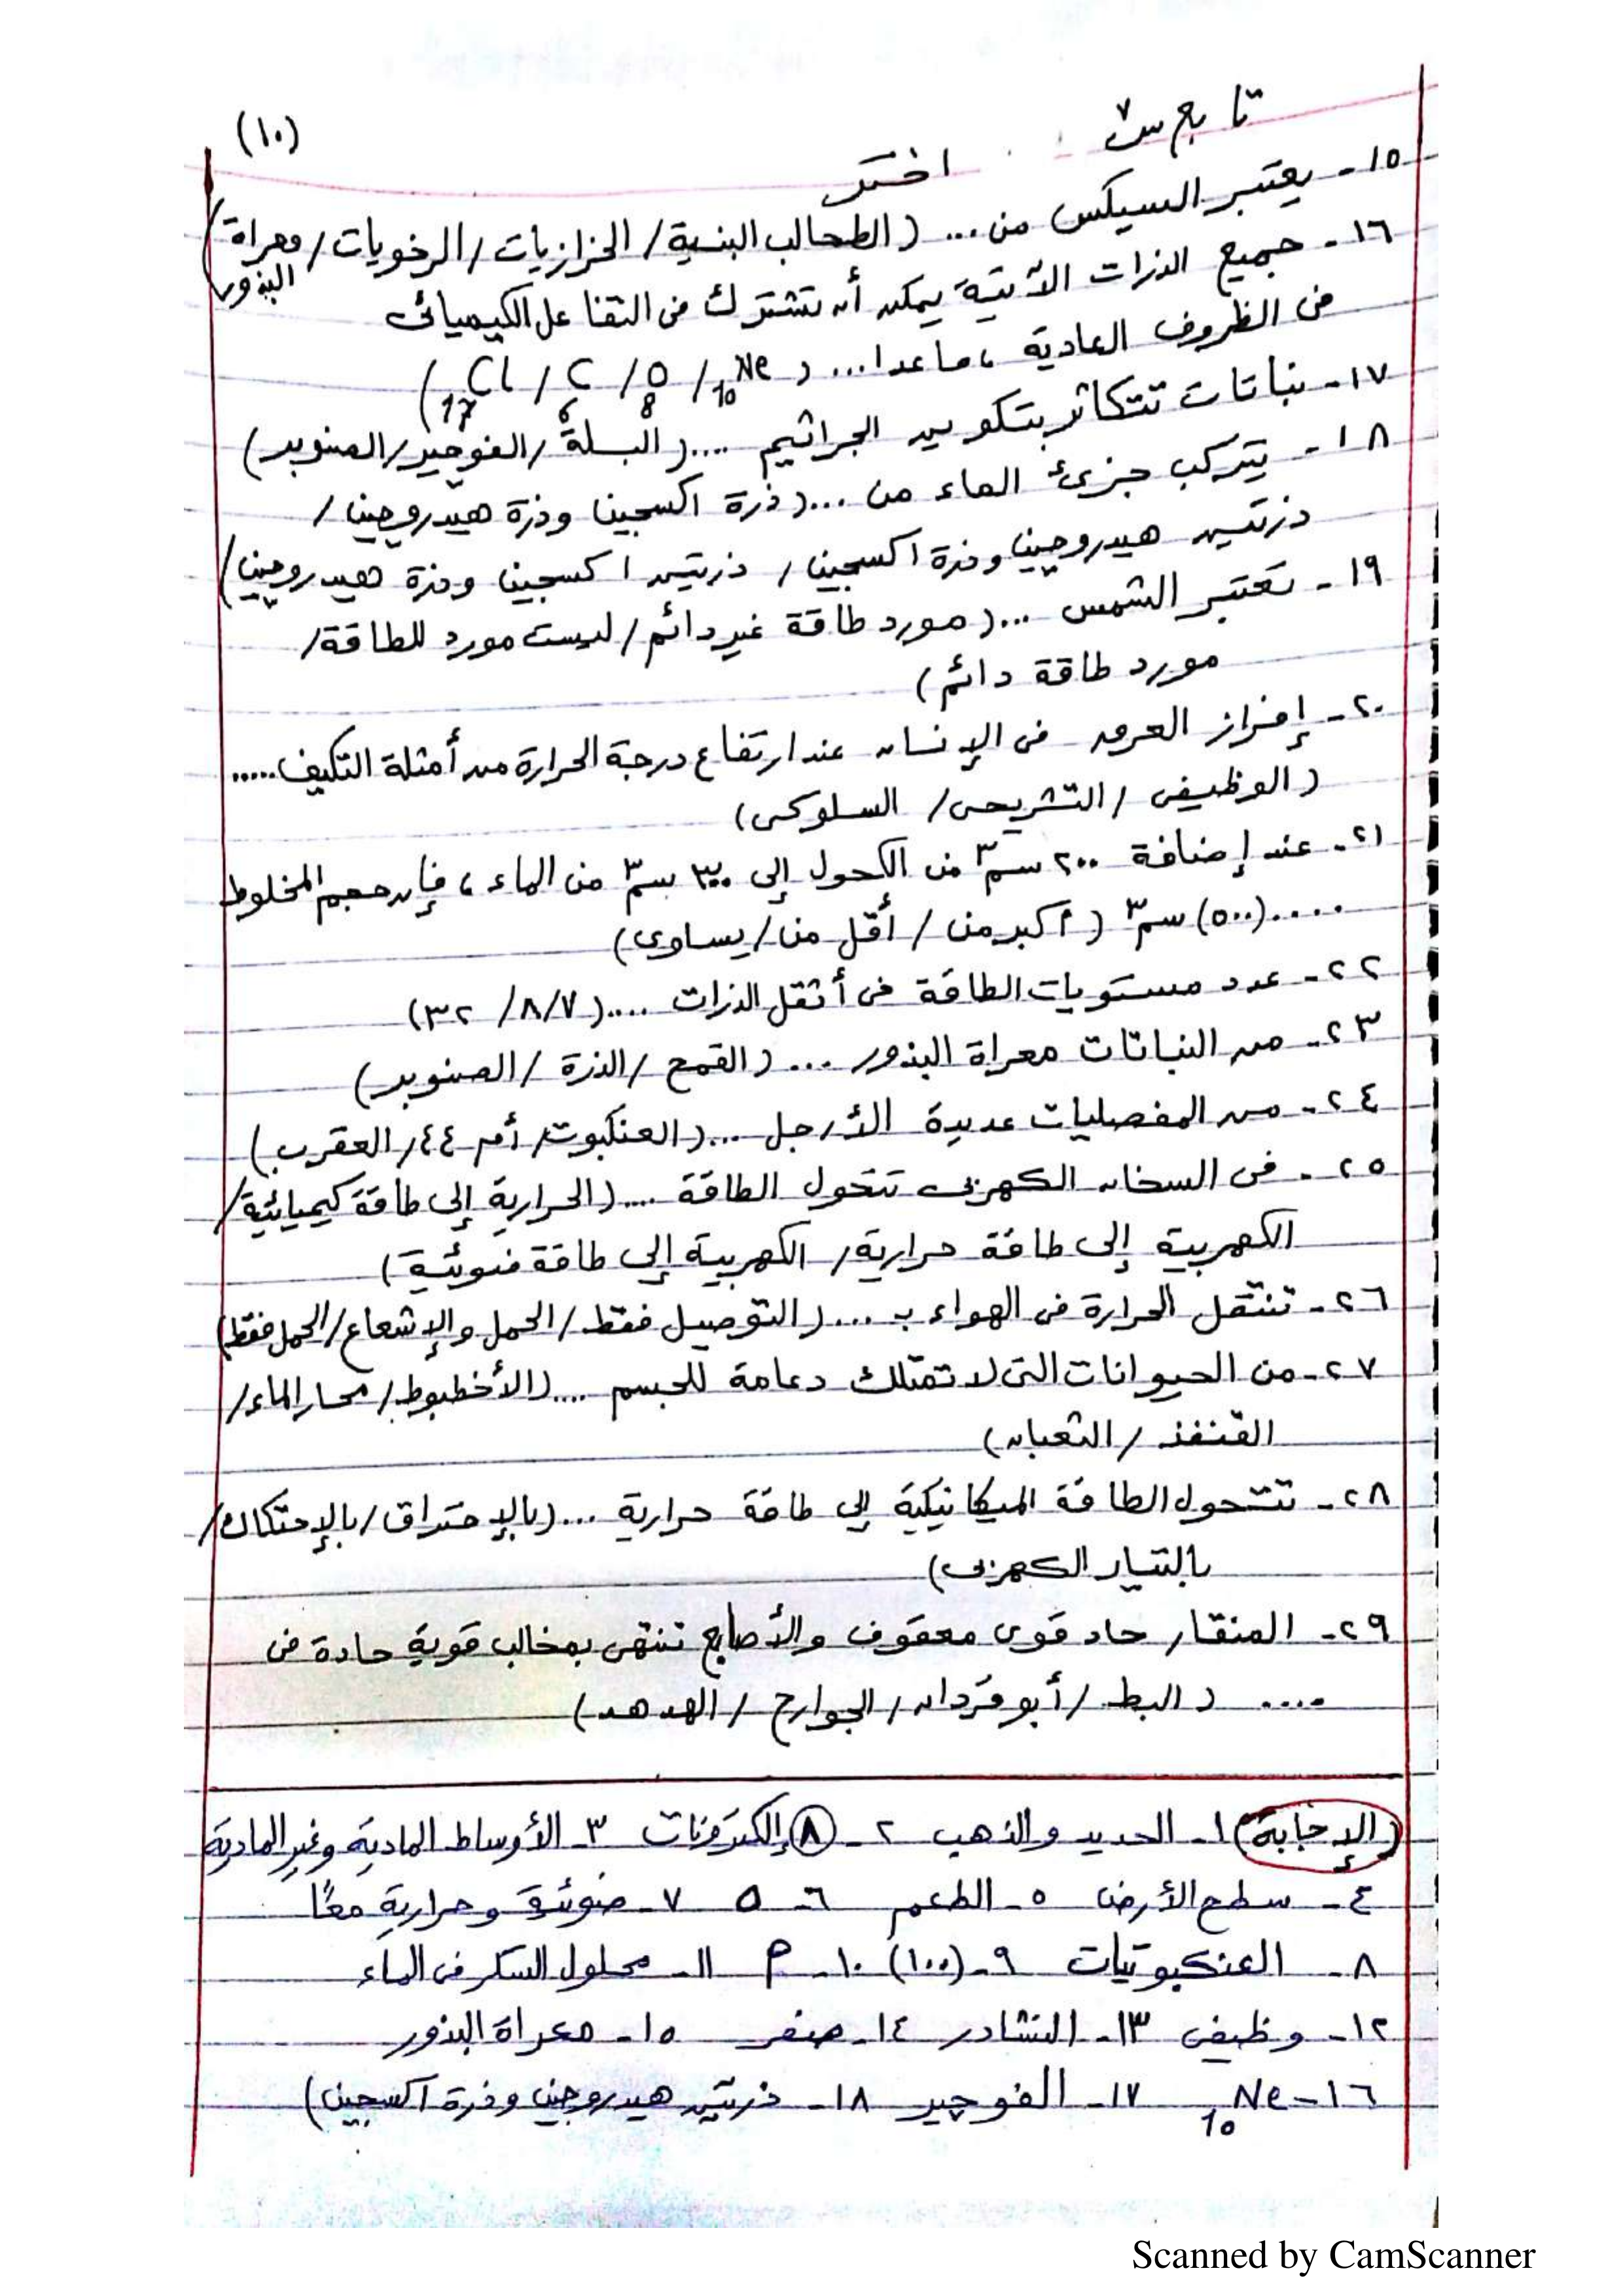 (١٠)
تابع س٧
اختر
١٥- يعتبر السيكس من ... (الطحالب البنية / الحزازيات / الرخويات / معراة البذور)
١٦- جميع الذرات الآتية يمكن أن تشترك فى التفاعل الكيميائى
فى الظروف العادية ، ماعدا ... ( 10Ne / 8O / 6C / 17Cl )
١٧- نباتات تتكاثر بتكوين الجراثيم .... (البسلة / الفوجير / الصنوبر)
١٨- يتركب جزئ الماء من ... (ذرة اكسجين وذرة هيدروجين /
ذرتين هيدروجين وذرة اكسجين / ذرتين اكسجين وذرة هيدروجين)
١٩- تعتبر الشمس ... (مورد طاقة غير دائم / ليست مورد للطاقة /
مورد طاقة دائم)
٢٠- إفراز العرق فى الإنسان عند ارتفاع درجة الحرارة من أمثلة التكيف .....
(الوظيفى / التشريحى / السلوكى)
٢١- عند إضافة ٢٠٠ سم٣ من الكحول إلى ٣٠٠ سم٣ من الماء ، فإن حجم المخلوط
.... (٥٠٠) سم٣ (أكبر من / أقل من / يساوى)
٢٢- عدد مستويات الطاقة فى أثقل الذرات .... (٧ / ٨ / ٣٢)
٢٣- من النباتات معراة البذور ... (القمح / الذرة / الصنوبر)
٢٤- من المفصليات عديدة الأرجل ... (العنكبوت / أم ٤٤ / العقرب)
٢٥- فى السخان الكهربى تتحول الطاقة .... (الحرارية إلى طاقة كيميائية /
الكهربية إلى طاقة حرارية / الكهربية إلى طاقة ضوئية)
٢٦- تنتقل الحرارة فى الهواء ب ... (التوصيل فقط / الحمل والإشعاع / الحمل فقط)
٢٧- من الحيوانات التى لا تمتلك دعامة للجسم .... (الأخطبوط / محار الماء /
القنفذ / الثعبان)
٢٨- تتحول الطاقة الميكانيكية إلى طاقة حرارية ... (بالإحتراق / بالإحتكاك /
بالتيار الكهربى)
٢٩- المنقار حاد قوى معقوف والأصابع تنتهى بمخالب قوية حادة فى
.... (البط / أبو قردان / الجوارح / الهدهد)
(الإجابة) ١- الحديد والذهب ٢- (٨) إلكترونات ٣- الأوساط المادية وغير المادية
٤- سطح الأرض ٥- الطعم ٦- ٥ ٧- ضوئية وحرارية معًا
٨- العنكبوتيات ٩- (١٠٠) ١٠- م ١١- محلول السكر فى الماء
١٢- وظيفى ١٣- النشادر ١٤- صفر ١٥- معراة البذور
١٦- 10Ne ١٧- الفوجير ١٨- ذرتين هيدروجين وذرة اكسجين)
Scanned by CamScanner